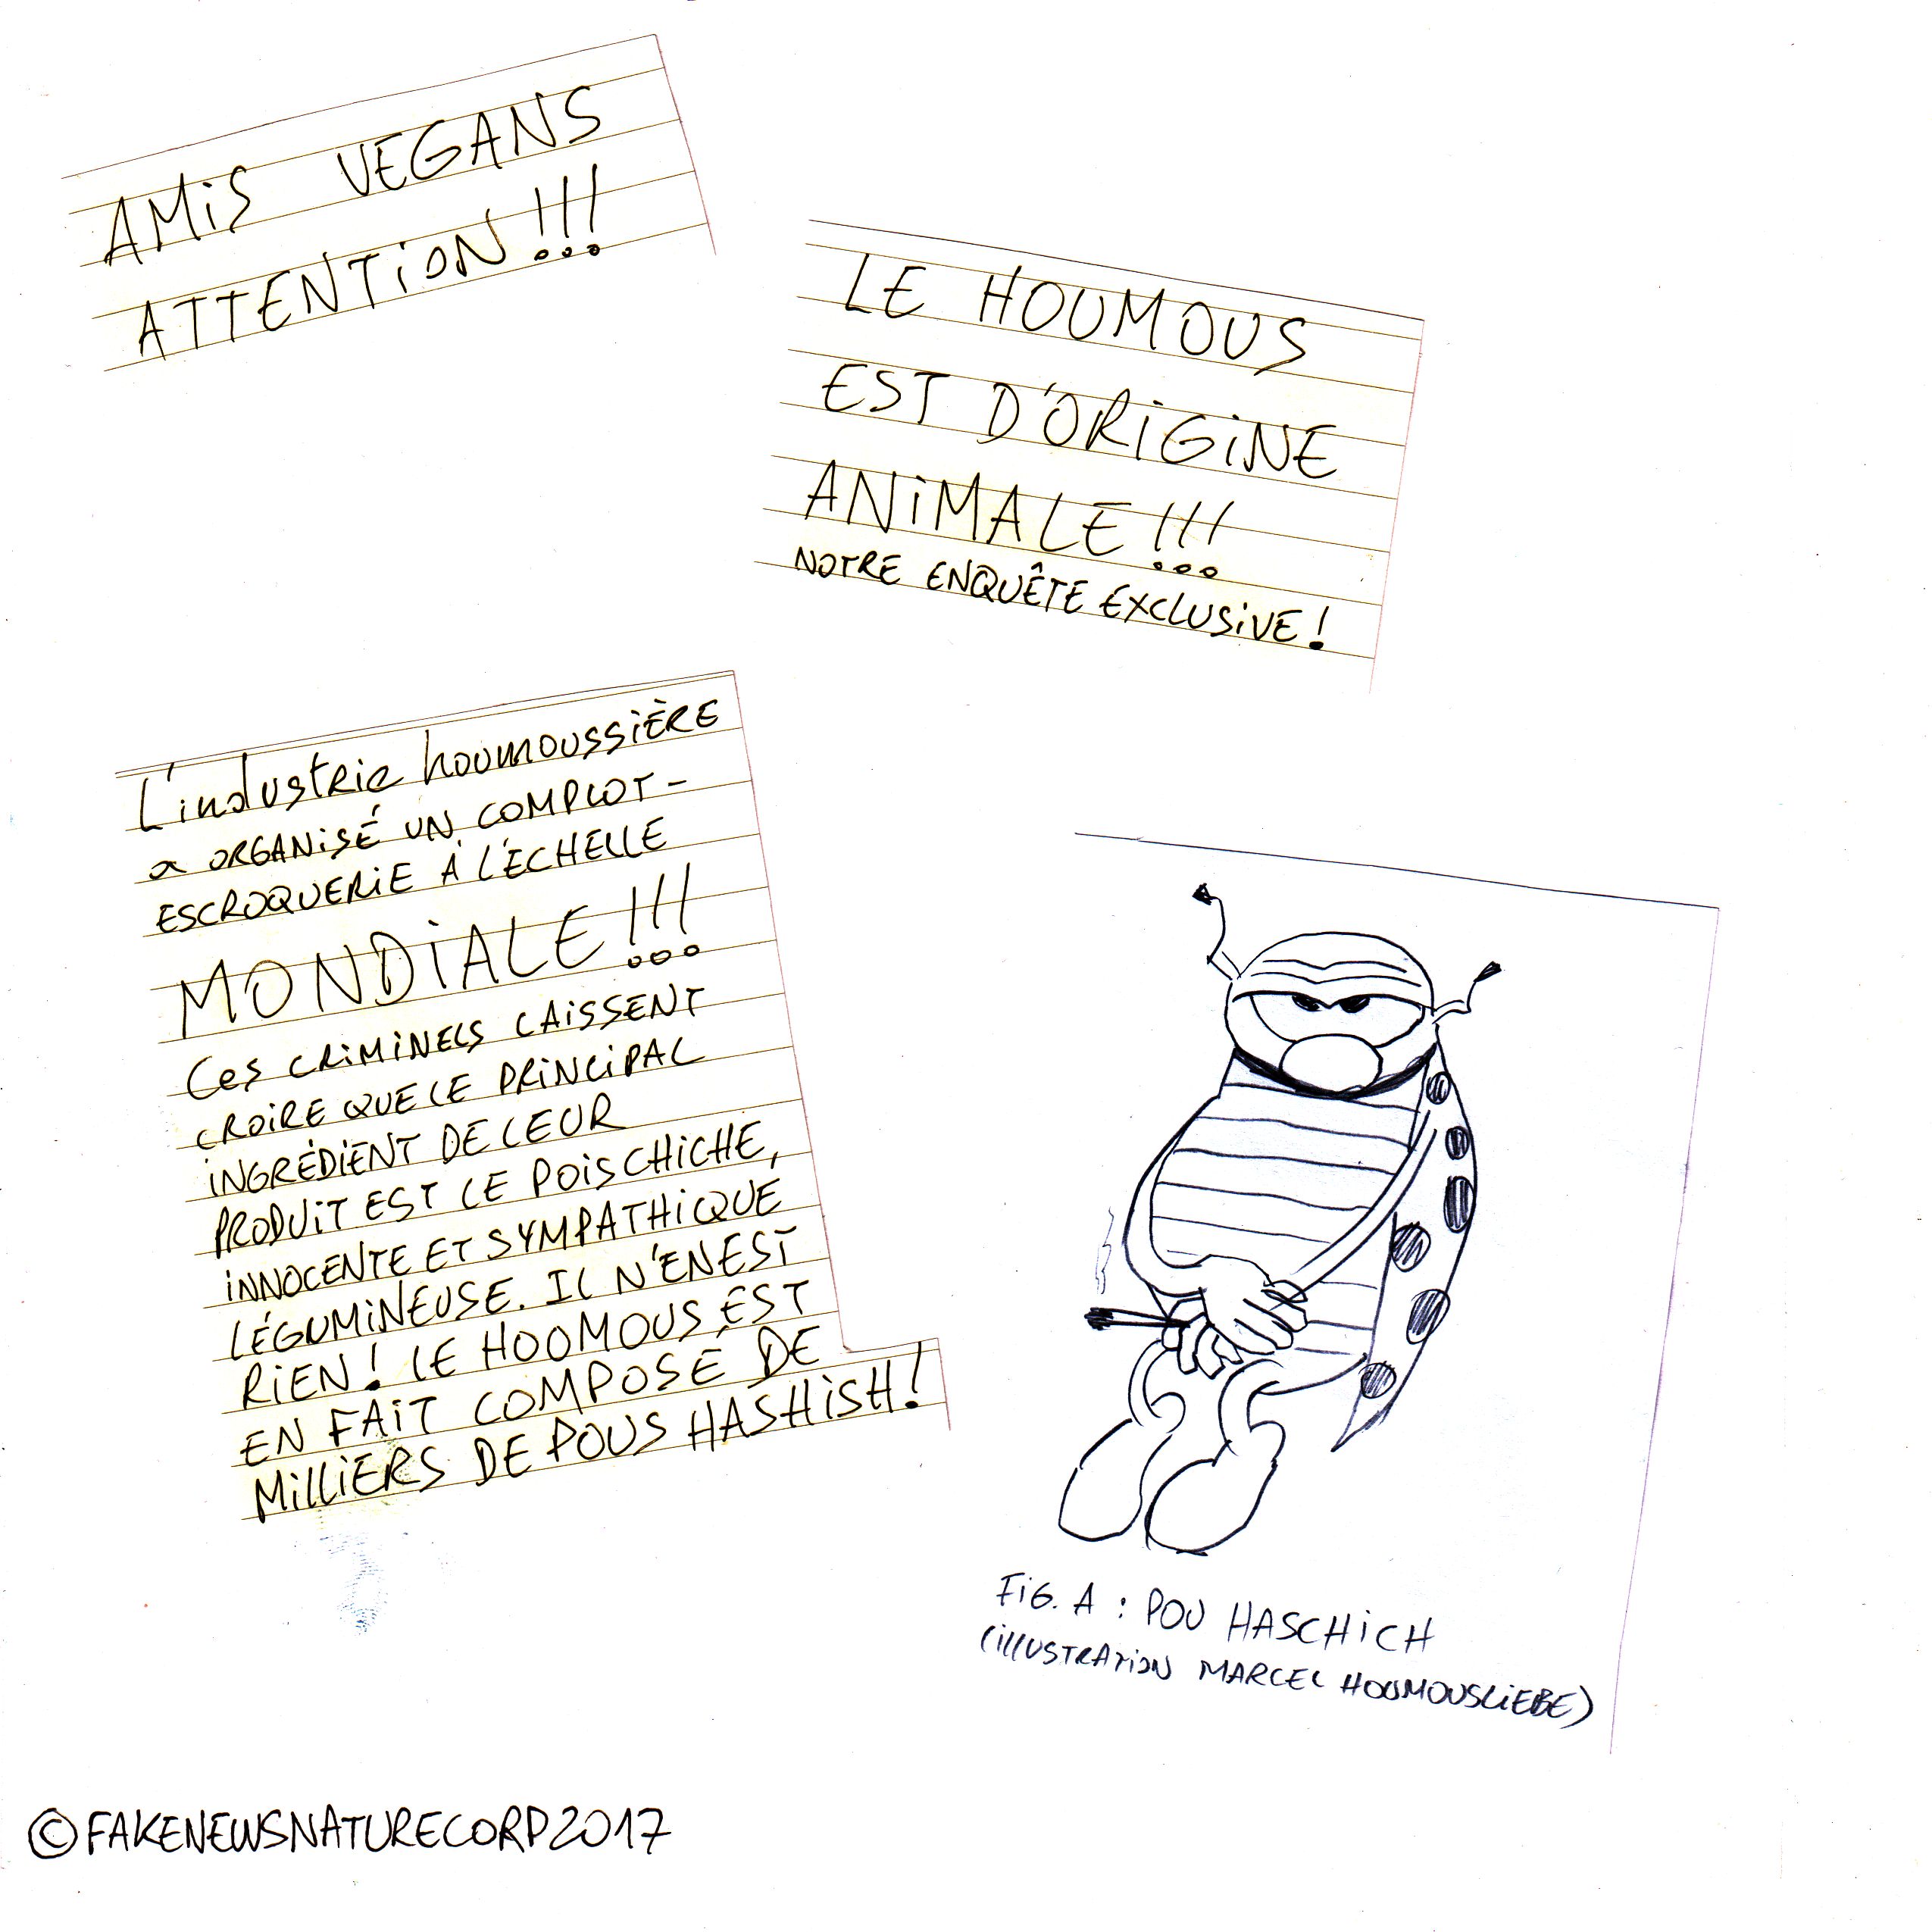 AMiS VEGANS
ATTENTiON!!!
LE HOUMOUS
EST D'ORiGiNE
ANiMALE!!!
NOTRE ENQUÊTE EXCLUSiVE!
L'industrie houmoussiÈRE
a ORGANiSÉ UN COMPLOT-
ESCROQUERiE À L'ÉCHELLE
MONDiALE!!!
Ces CRiMiNELS LAiSSENT
CROiRE QUE LE PRiNCiPAL
iNGRÉDiENT DE LEUR
PRODUiT EST LE POiS CHiCHE,
iNNOCENTE ET SYMPATHiQUE
LÉGUMiNEUSE. IL N'EN EST
RiEN! LE HOOMOUS EST
EN FAiT COMPOSÉ DE
MiLLiERS DE POUS HASHiSH!
FiG. A : POU HASCHiCH
(iLLUSTRATiON MARCEL HOUMOUSLiEBE)
©FAKENEWSNATURECORP2017